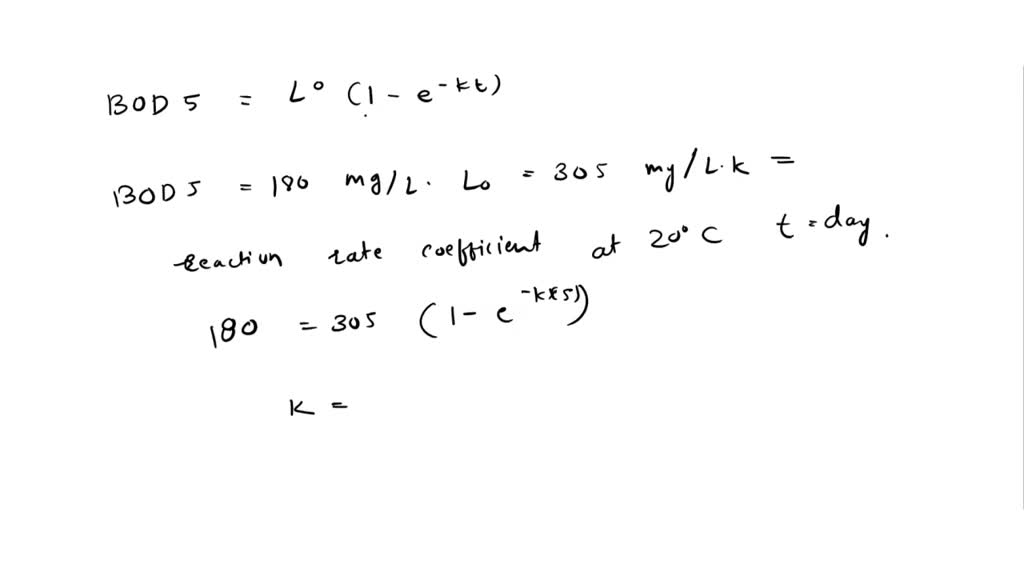 BOD 5 = L° (1 - e^-kt)
BOD 5 = 180 mg/L. Lo = 305 mg/L. k =
reaction rate coefficient at 20°C t = day.
180 = 305 (1 - e^-k(5))
K =